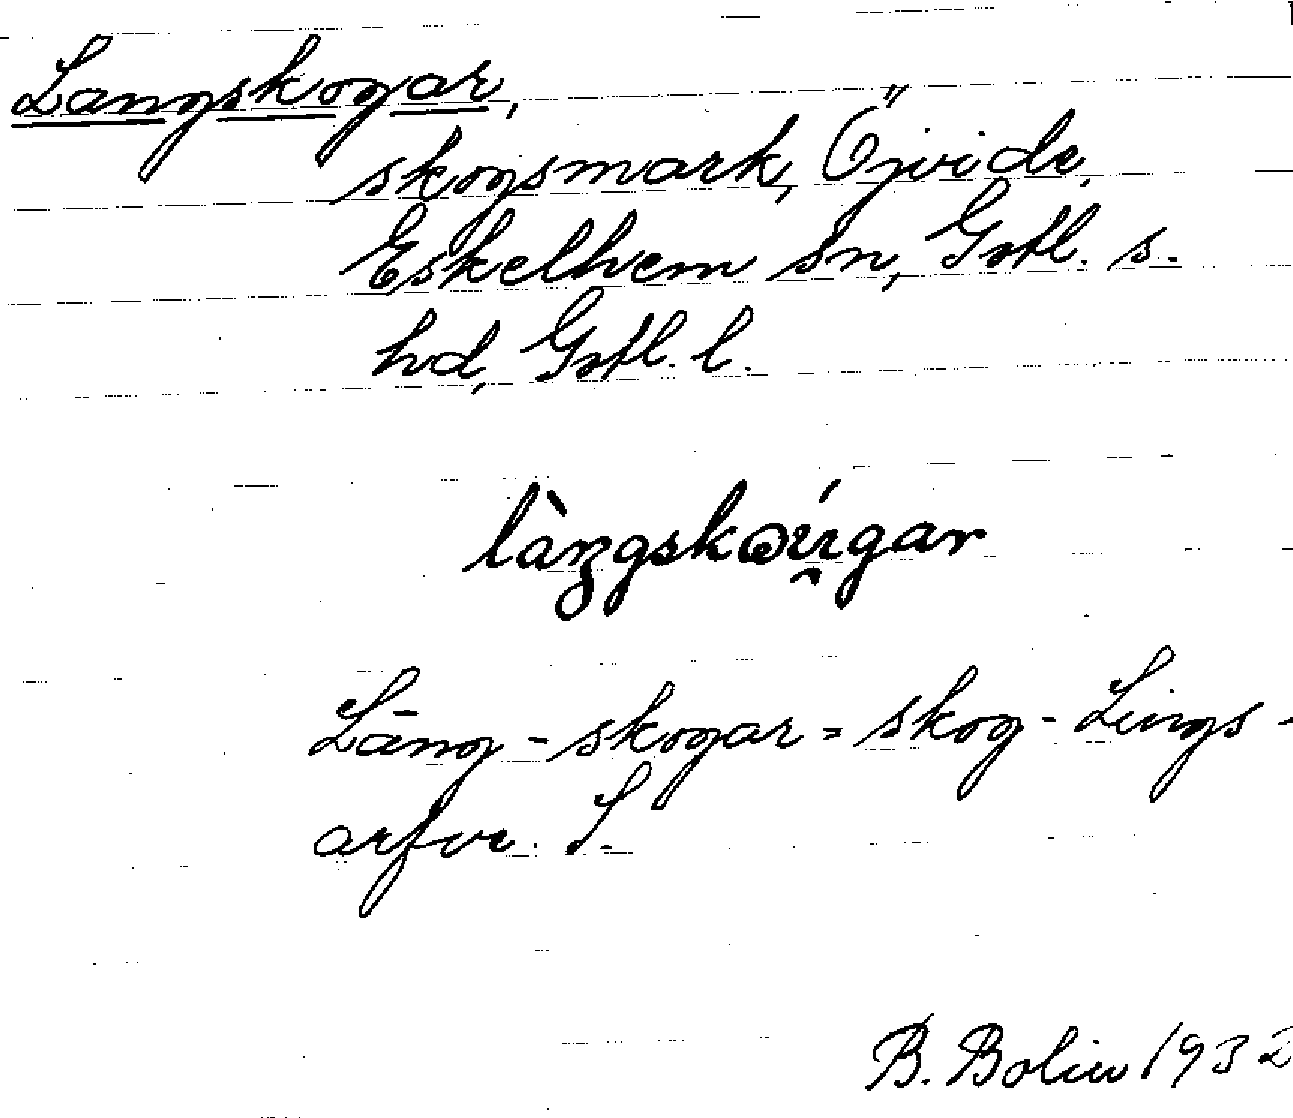 Langskogar,
skogsmark, Öjvide,
Eskelhem sn, Gotl. s.
hd, Gotl. l.
Lāng - skogar = skog - Lings -
arfve. S.
B. Bolin 1932